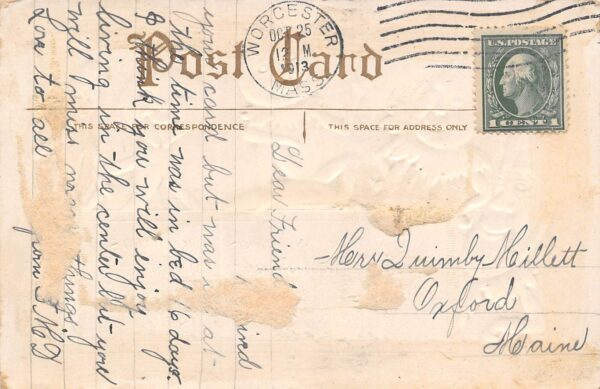 Post Card
WORCESTER
OCT 25
12 M
1913
MASS.
U.S. POSTAGE
1 CENT 1
THIS SPACE FOR CORRESPONDENCE
THIS SPACE FOR ADDRESS ONLY
Dear Friend
ired
your card but was at
the time was in bed 16 days.
I think you will enjoy
living in the center but you
will miss many things.
Love to all
from
Mrs Quimby Millett
Oxford
Maine